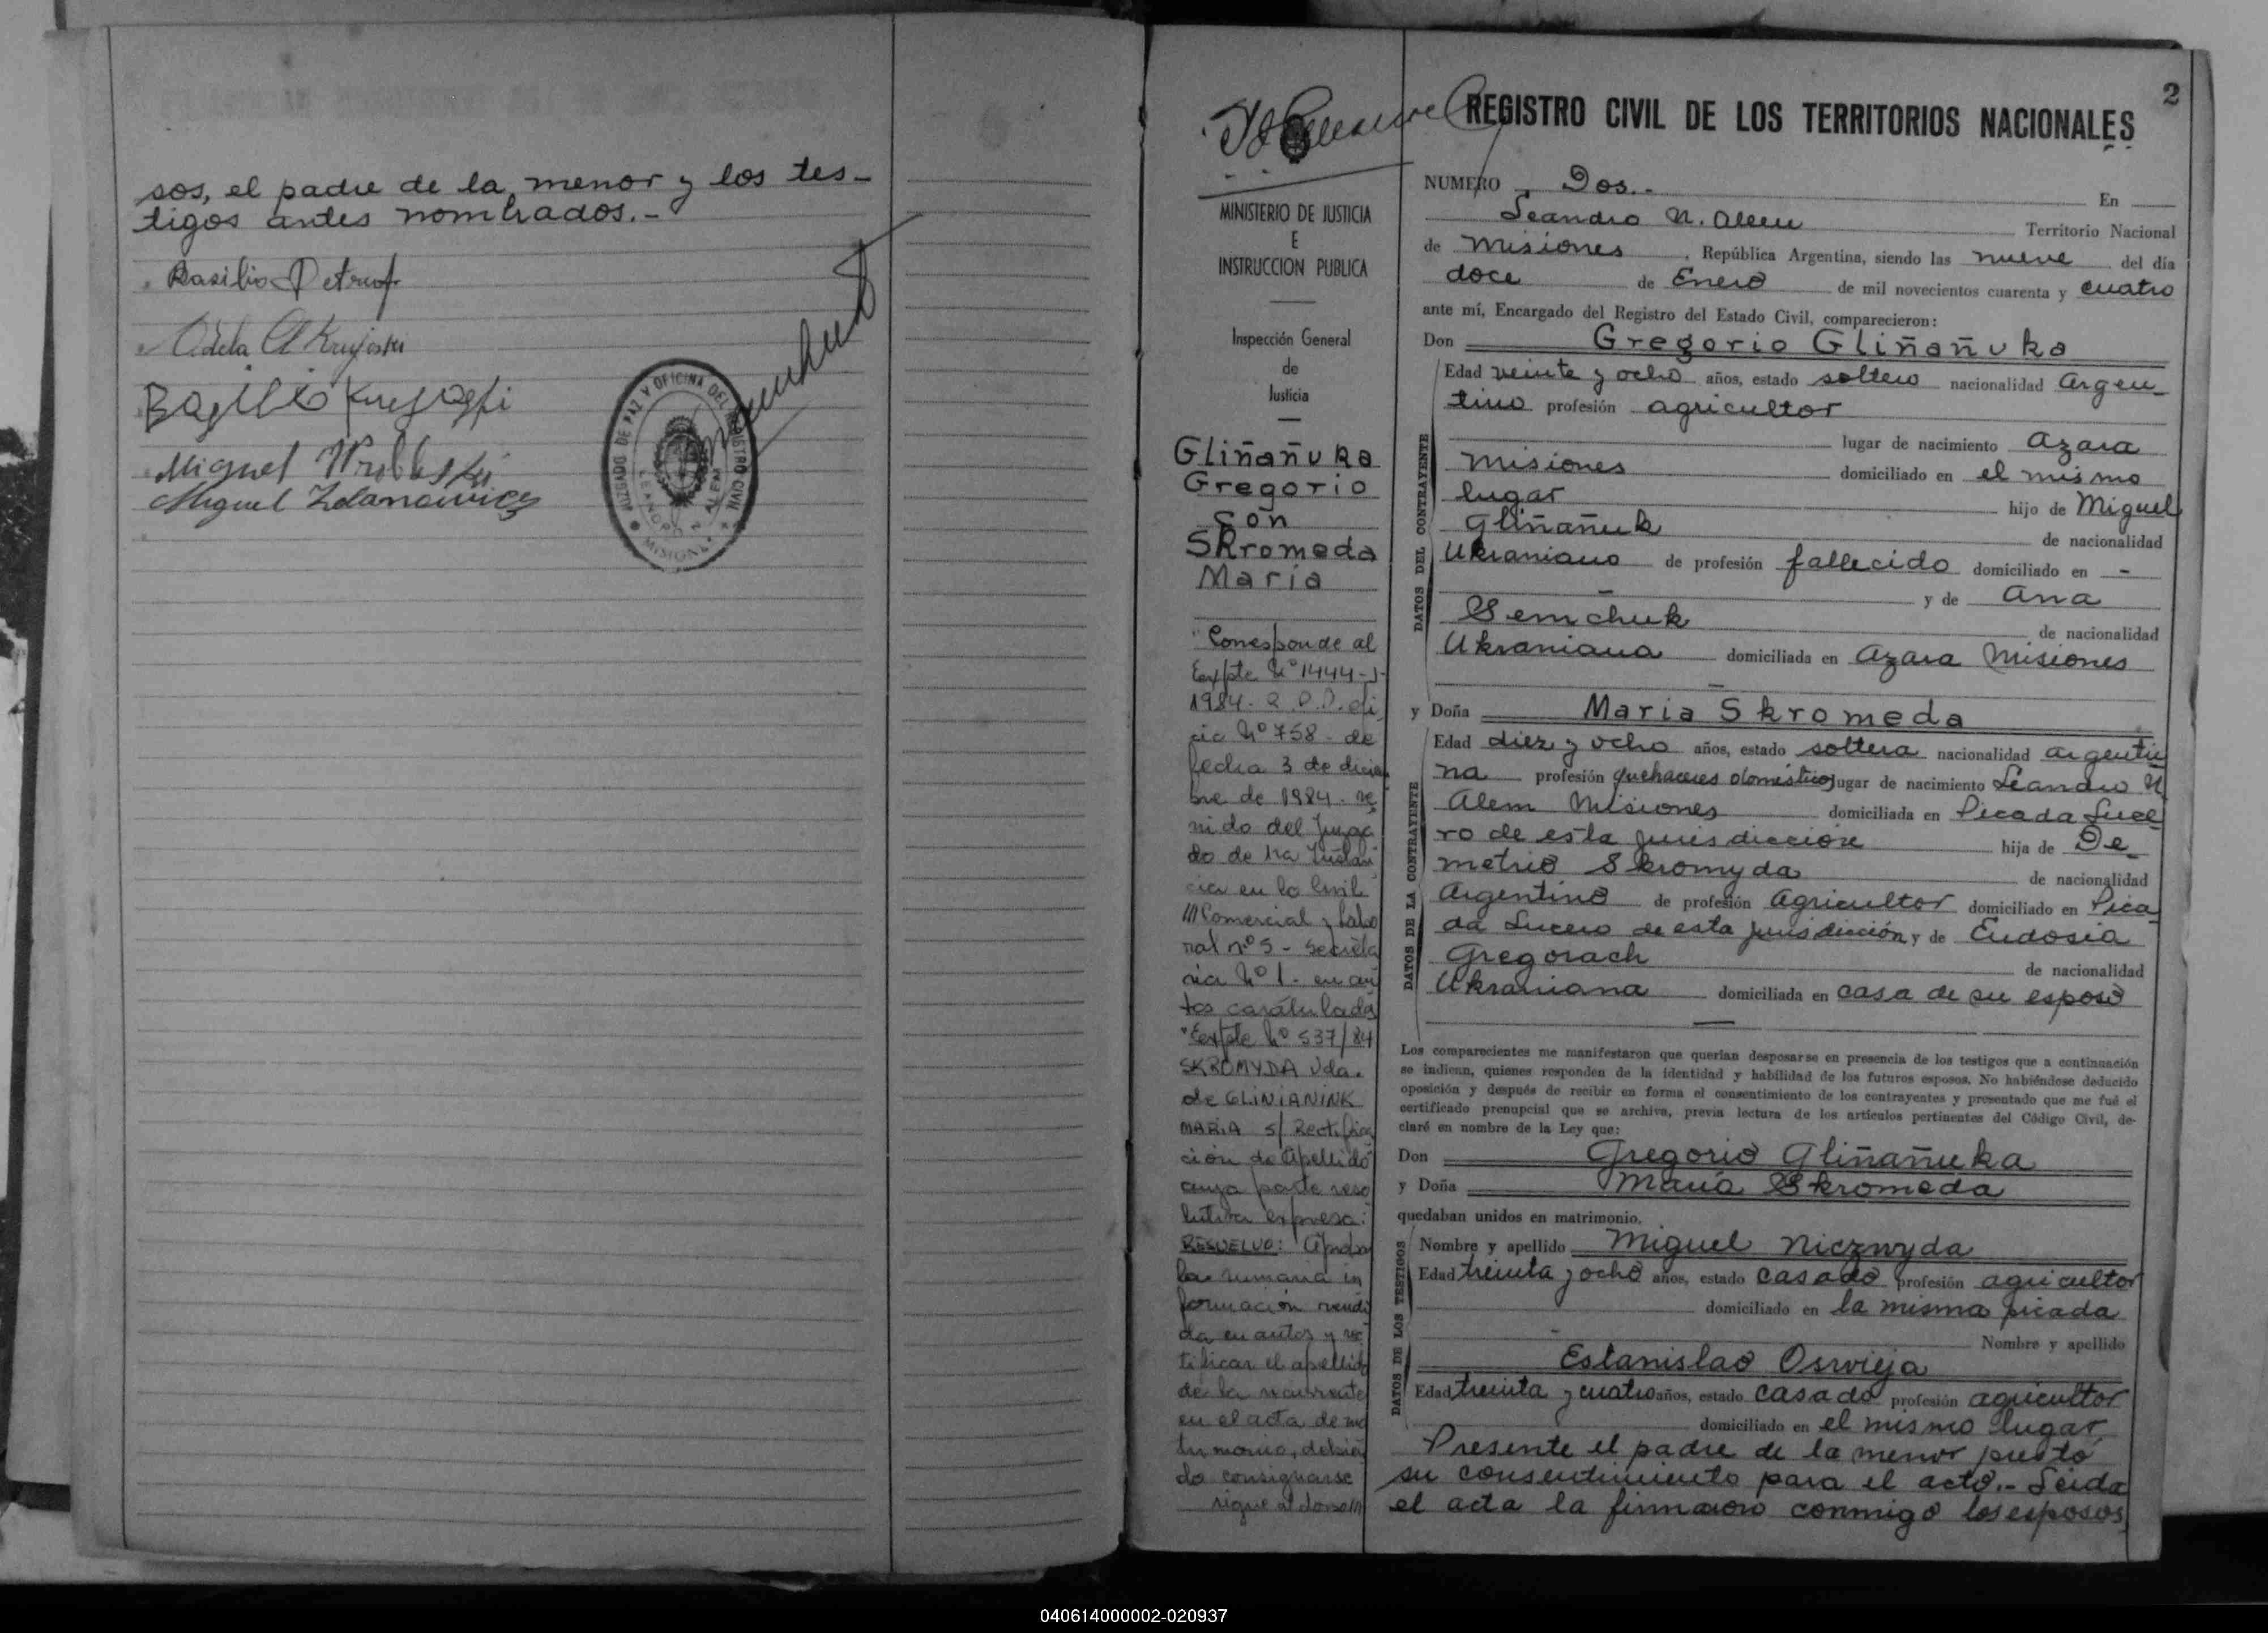 sos, el padre de la menor y los tes-
tigos antes nombrados.-
Basilio Petruf
Adela A Krujoski
Miguel Wrobleski
Miguel Zdanowicz
JUZGADO DE PAZ Y OFICINA DEL REGISTRO CIVIL
LEANDRO N. ALEM
MISIONES
2
REGISTRO CIVIL DE LOS TERRITORIOS NACIONALES
MINISTERIO DE JUSTICIA
E
INSTRUCCION PUBLICA
Inspección General
de
Justicia
Gliñañuka
Gregorio
con
Skromeda
María
Corresponde al
Expte Nº 1444-J-
1984- R.P.P. ofi
cio Nº 758 - de
fecha 3 de diciem
bre de 1984 - ve
nido del Juzga
do de 1ra Instan
cia en lo Civil
///Comercial y Labo
ral nº 5 - Secreta
ria Nº 1 - en au
tos caratulados
"Expte Nº 537/84
SKROMYDA Vda.
de GLINIANINK
MARIA s/ Rectifica
ción de Apellido
cuya parte reso
lutiva expresa:
RESUELVO: Aprobar
la sumaria in
formación rendi
da en autos y rec
tificar el apellido
de la recurrente
en el acta de ma
trimonio, debien
do consignarse
sigue al dorso///
NUMERO Dos.- En
Leandro N. Alem Territorio Nacional
de Misiones, República Argentina, siendo las nueve del día
doce de Enero de mil novecientos cuarenta y cuatro
ante mí, Encargado del Registro del Estado Civil, comparecieron:
Don Gregorio Gliñañuka
DATOS DEL CONTRAYENTE
Edad veinte y ocho años, estado soltero nacionalidad Argen-
tino profesión agricultor
lugar de nacimiento Azara
Misiones domiciliado en el mismo
lugar hijo de Miguel
Gliñañuk de nacionalidad
Ukraniano de profesión fallecido domiciliado en -
- y de Ana
Semchuk de nacionalidad
Ukraniana domiciliada en Azara Misiones
y Doña Maria Skromeda
DATOS DE LA CONTRAYENTE
Edad diez y ocho años, estado soltera nacionalidad argenti
na profesión quehaceres domésticos lugar de nacimiento Leandro N.
Alem Misiones domiciliada en Picada Luce
ro de esta jurisdicción hija de De-
metrio Skromyda de nacionalidad
Argentino de profesión Agricultor domiciliado en Pica
da Lucero de esta jurisdicción y de Eudosia
Gregorach de nacionalidad
Ukraniana domiciliada en casa de su esposo
Los comparecientes me manifestaron que querían desposarse en presencia de los testigos que a continuación
se indican, quienes responden de la identidad y habilidad de los futuros esposos. No habiéndose deducido
oposición y después de recibir en forma el consentimiento de los contrayentes y presentado que me fué el
certificado prenupcial que se archiva, previa lectura de los artículos pertinentes del Código Civil, de-
claré en nombre de la Ley que:
Don Gregorio Gliñañuka
y Doña María Skromeda
quedaban unidos en matrimonio.
DATOS DE LOS TESTIGOS
Nombre y apellido Miguel Niczwyda
Edad treinta y ocho años, estado casado profesión agricultor
domiciliado en la misma picada
Nombre y apellido
Estanislao Oswieja
Edad treinta y cuatro años, estado casado profesión agricultor
domiciliado en el mismo lugar.
Presente el padre de la menor prestó
su consentimiento para el acto.- Leída
el acta la firmaron conmigo los esposos,
040614000002-020937